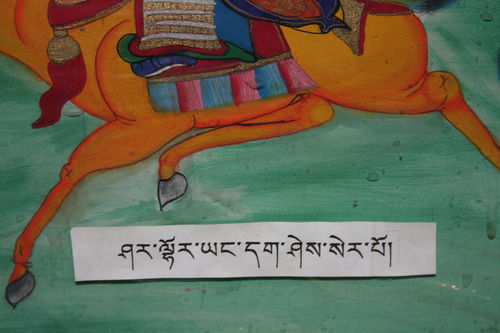 ཤར་ལྷོར་ཡང་དག་ཤེས་སེར་པོ།